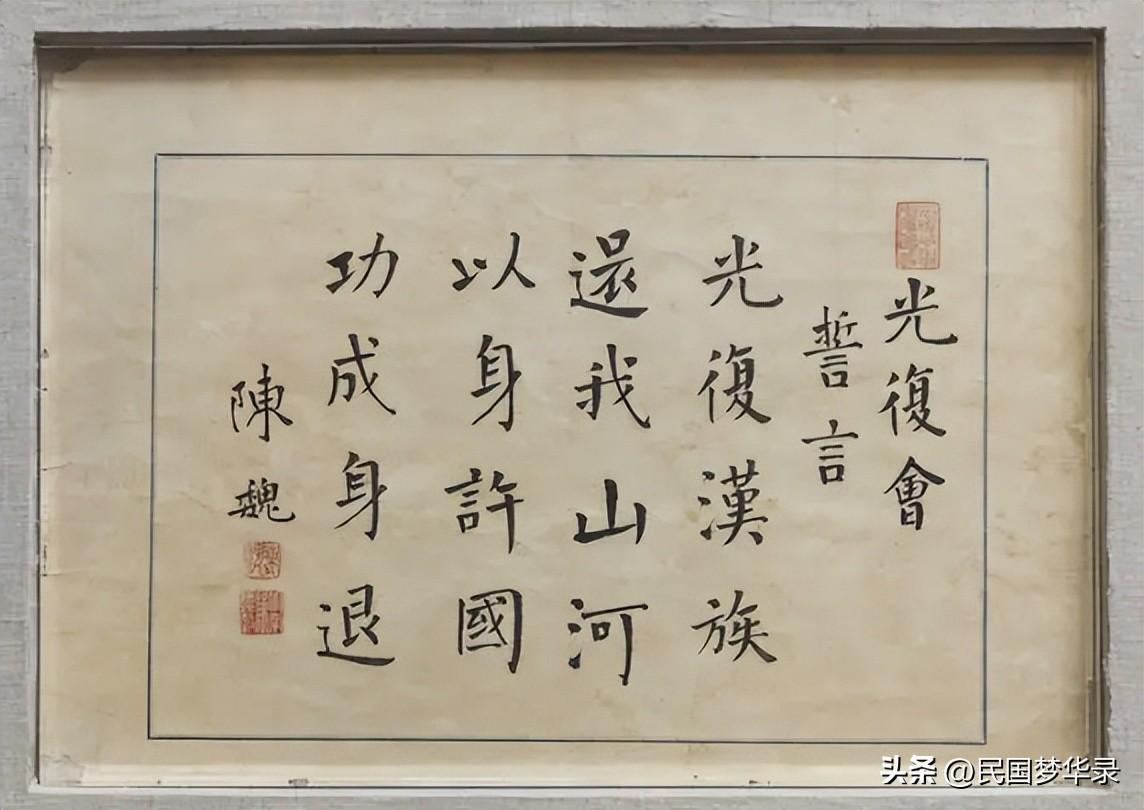 光復會
誓言
光復漢族
還我山河
以身許國
功成身退
陳魏
头条 @民国梦华录